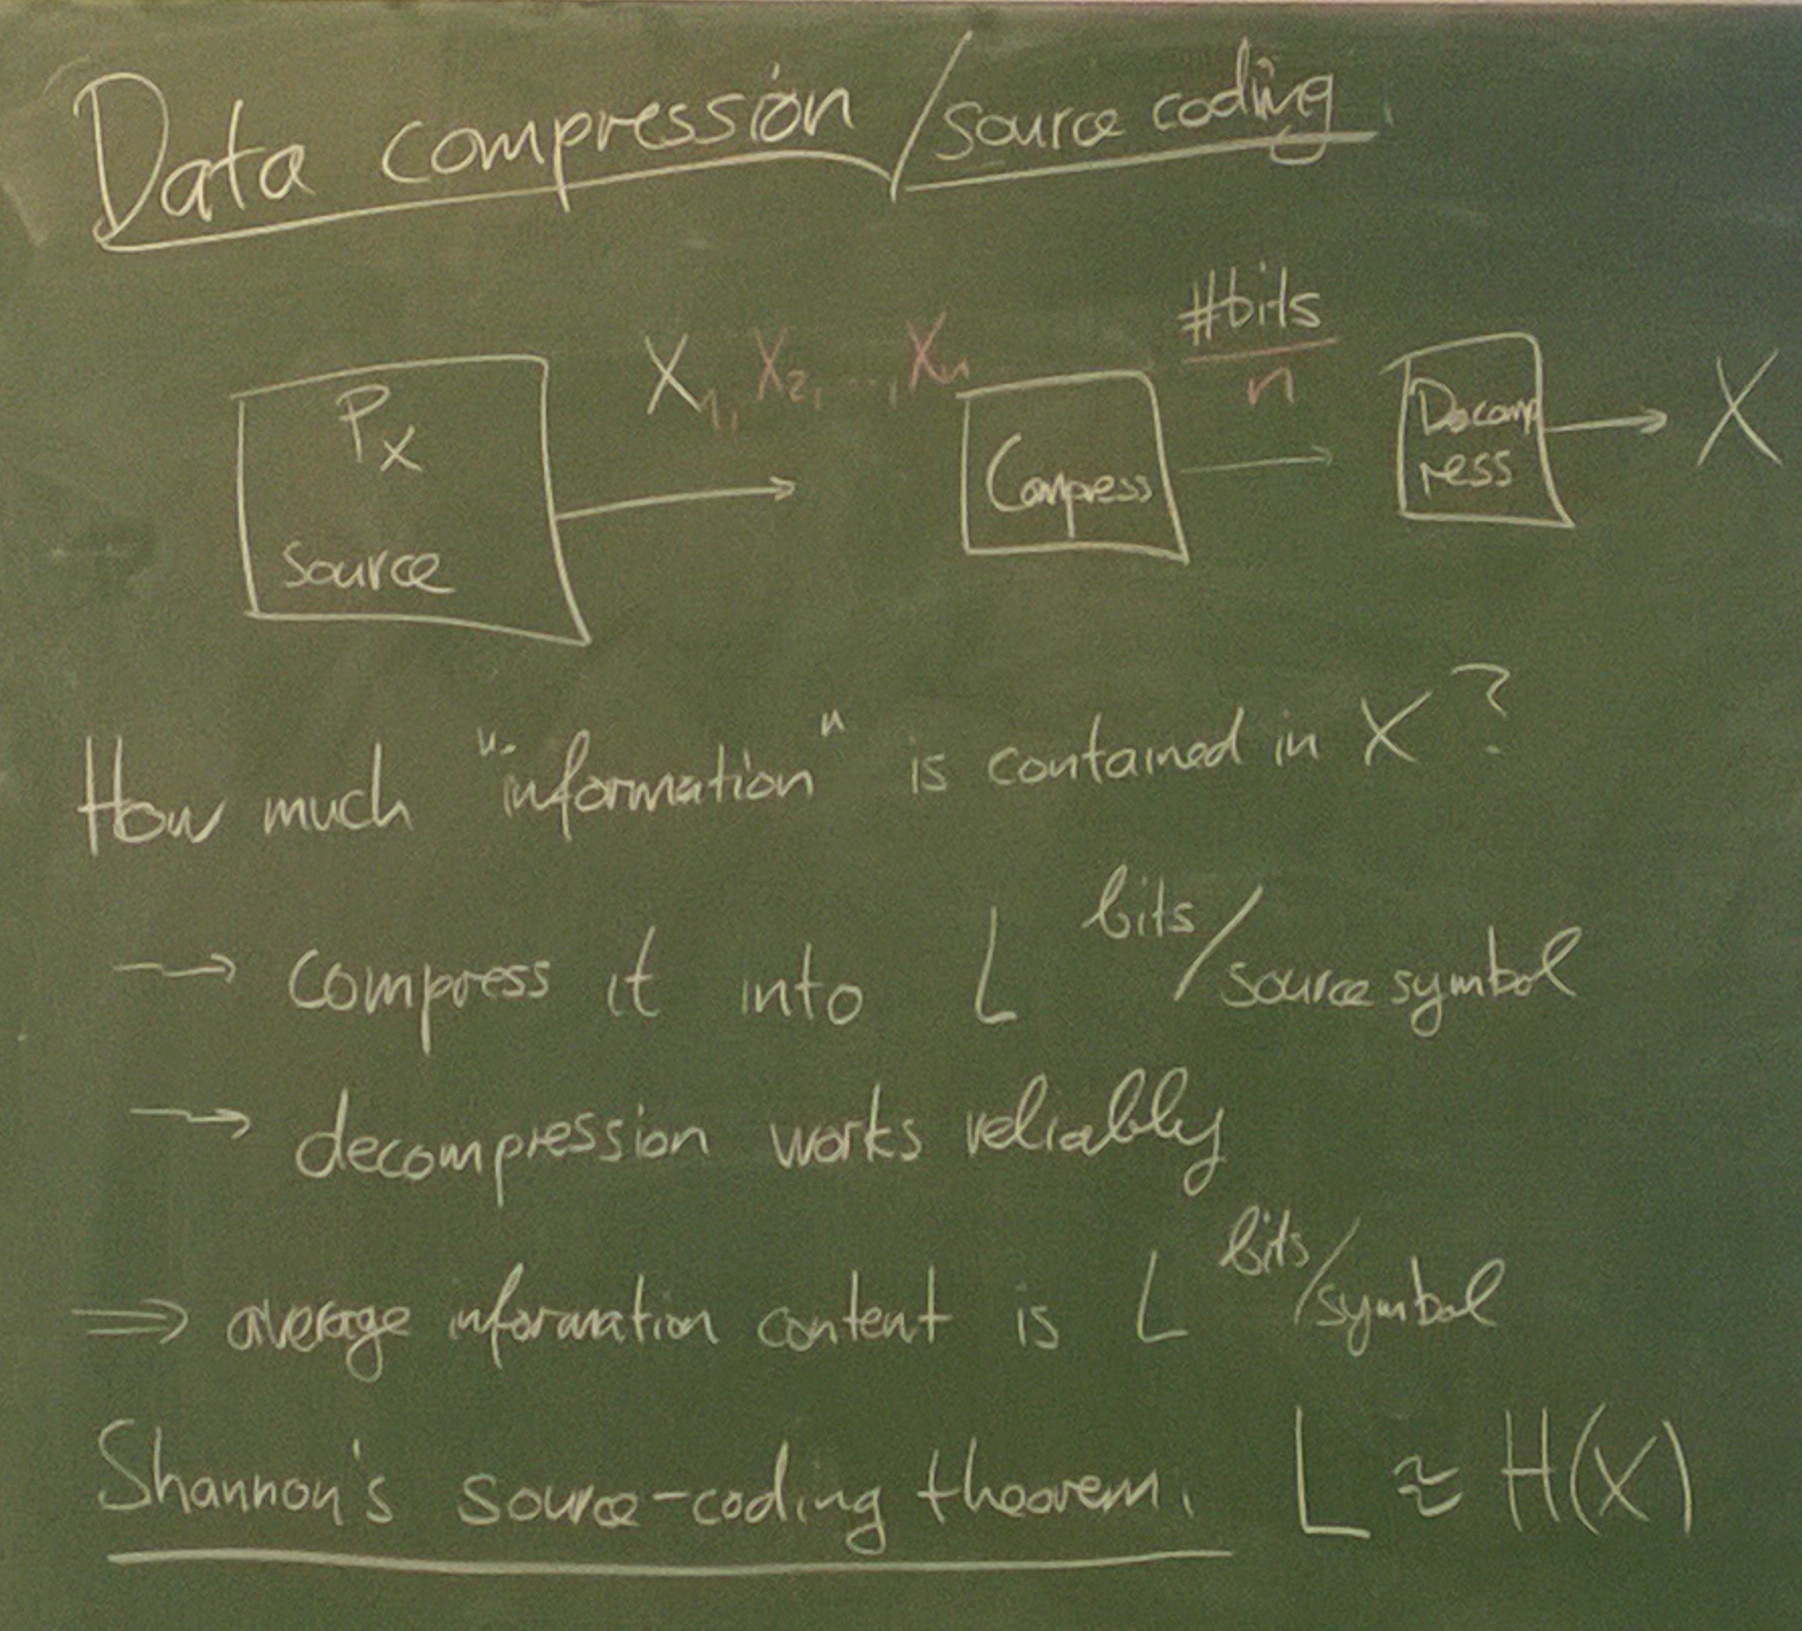 Data compression / source coding
X₁, X₂, ..., Xₙ
#bits
n
P_X
Source
Compress
Decomp
ress
X
How much "information" is contained in X?
→ compress it into L bits/source symbol
→ decompression works reliably
⇒ average information content is L bits/symbol
Shannon's source-coding theorem. L ≈ H(X)